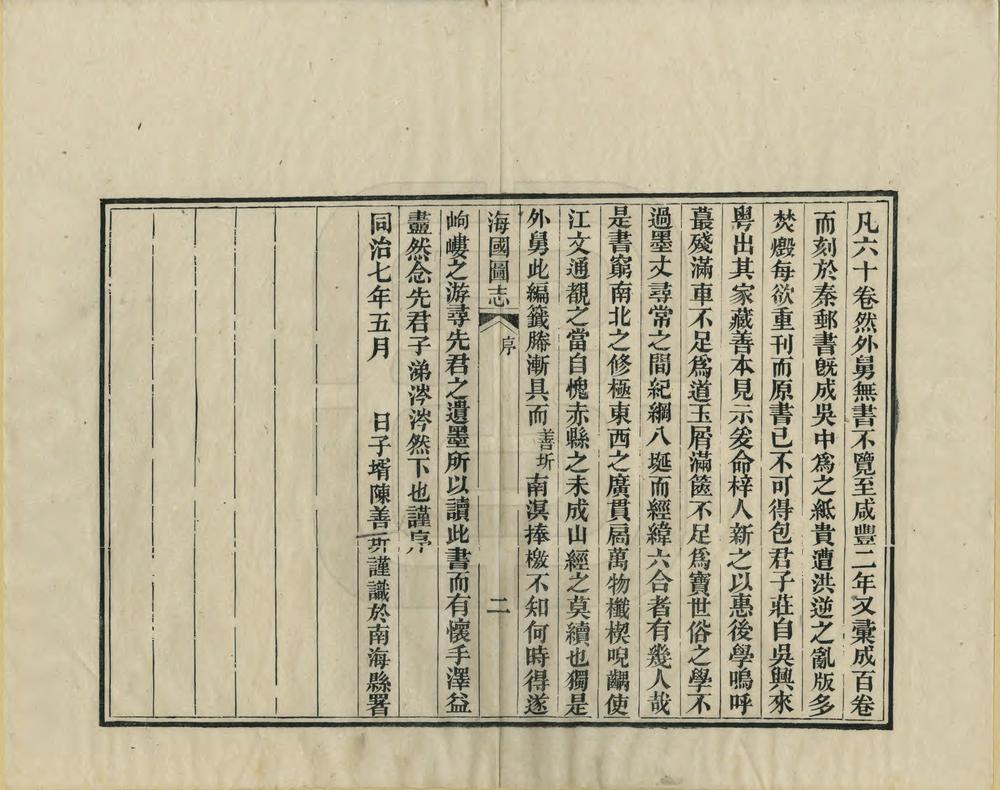 凡六十卷然外舅無書不覽至咸豐二年又彙成百卷
而刻於秦郵書既成吳中爲之紙貴遭洪逆之亂版多
焚燬每欲重刊而原書已不可得包君子莊自吳興來
粵出其家藏善本見示爰命梓人新之以惠後學嗚呼
蕞殘滿車不足爲道玉屑滿篋不足爲寶世俗之學不
過墨丈尋常之間紀綱八埏而經緯六合者有幾人哉
是書窮南北之修極東西之廣貫扃萬物櫼楔唲齵使
江文通覩之當自愧赤縣之未成山經之莫續也獨是
外舅此編籤縢漸具而善圻南溟捧檄不知何時得遂
海國圖志 序 二
岣嶁之游尋先君之遺墨所以讀此書而有懷手澤益
盡然念先君子涕涔涔然下也謹序
同治七年五月 日子壻陳善圻謹識於南海縣署